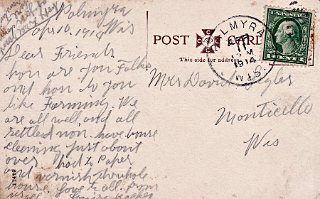 Palmyra
Apr 10. 1914 Wis
Dear Friends
how are you Folks
and how do you
like Farming. We
are all well and all
settled now. have house
cleaning just about
over. had to Paper
and varnish through
house. Love to all from
POST CARD
This side for address
PALMYRA
APR
1914
WIS.
Mrs David
Monticello
Wis